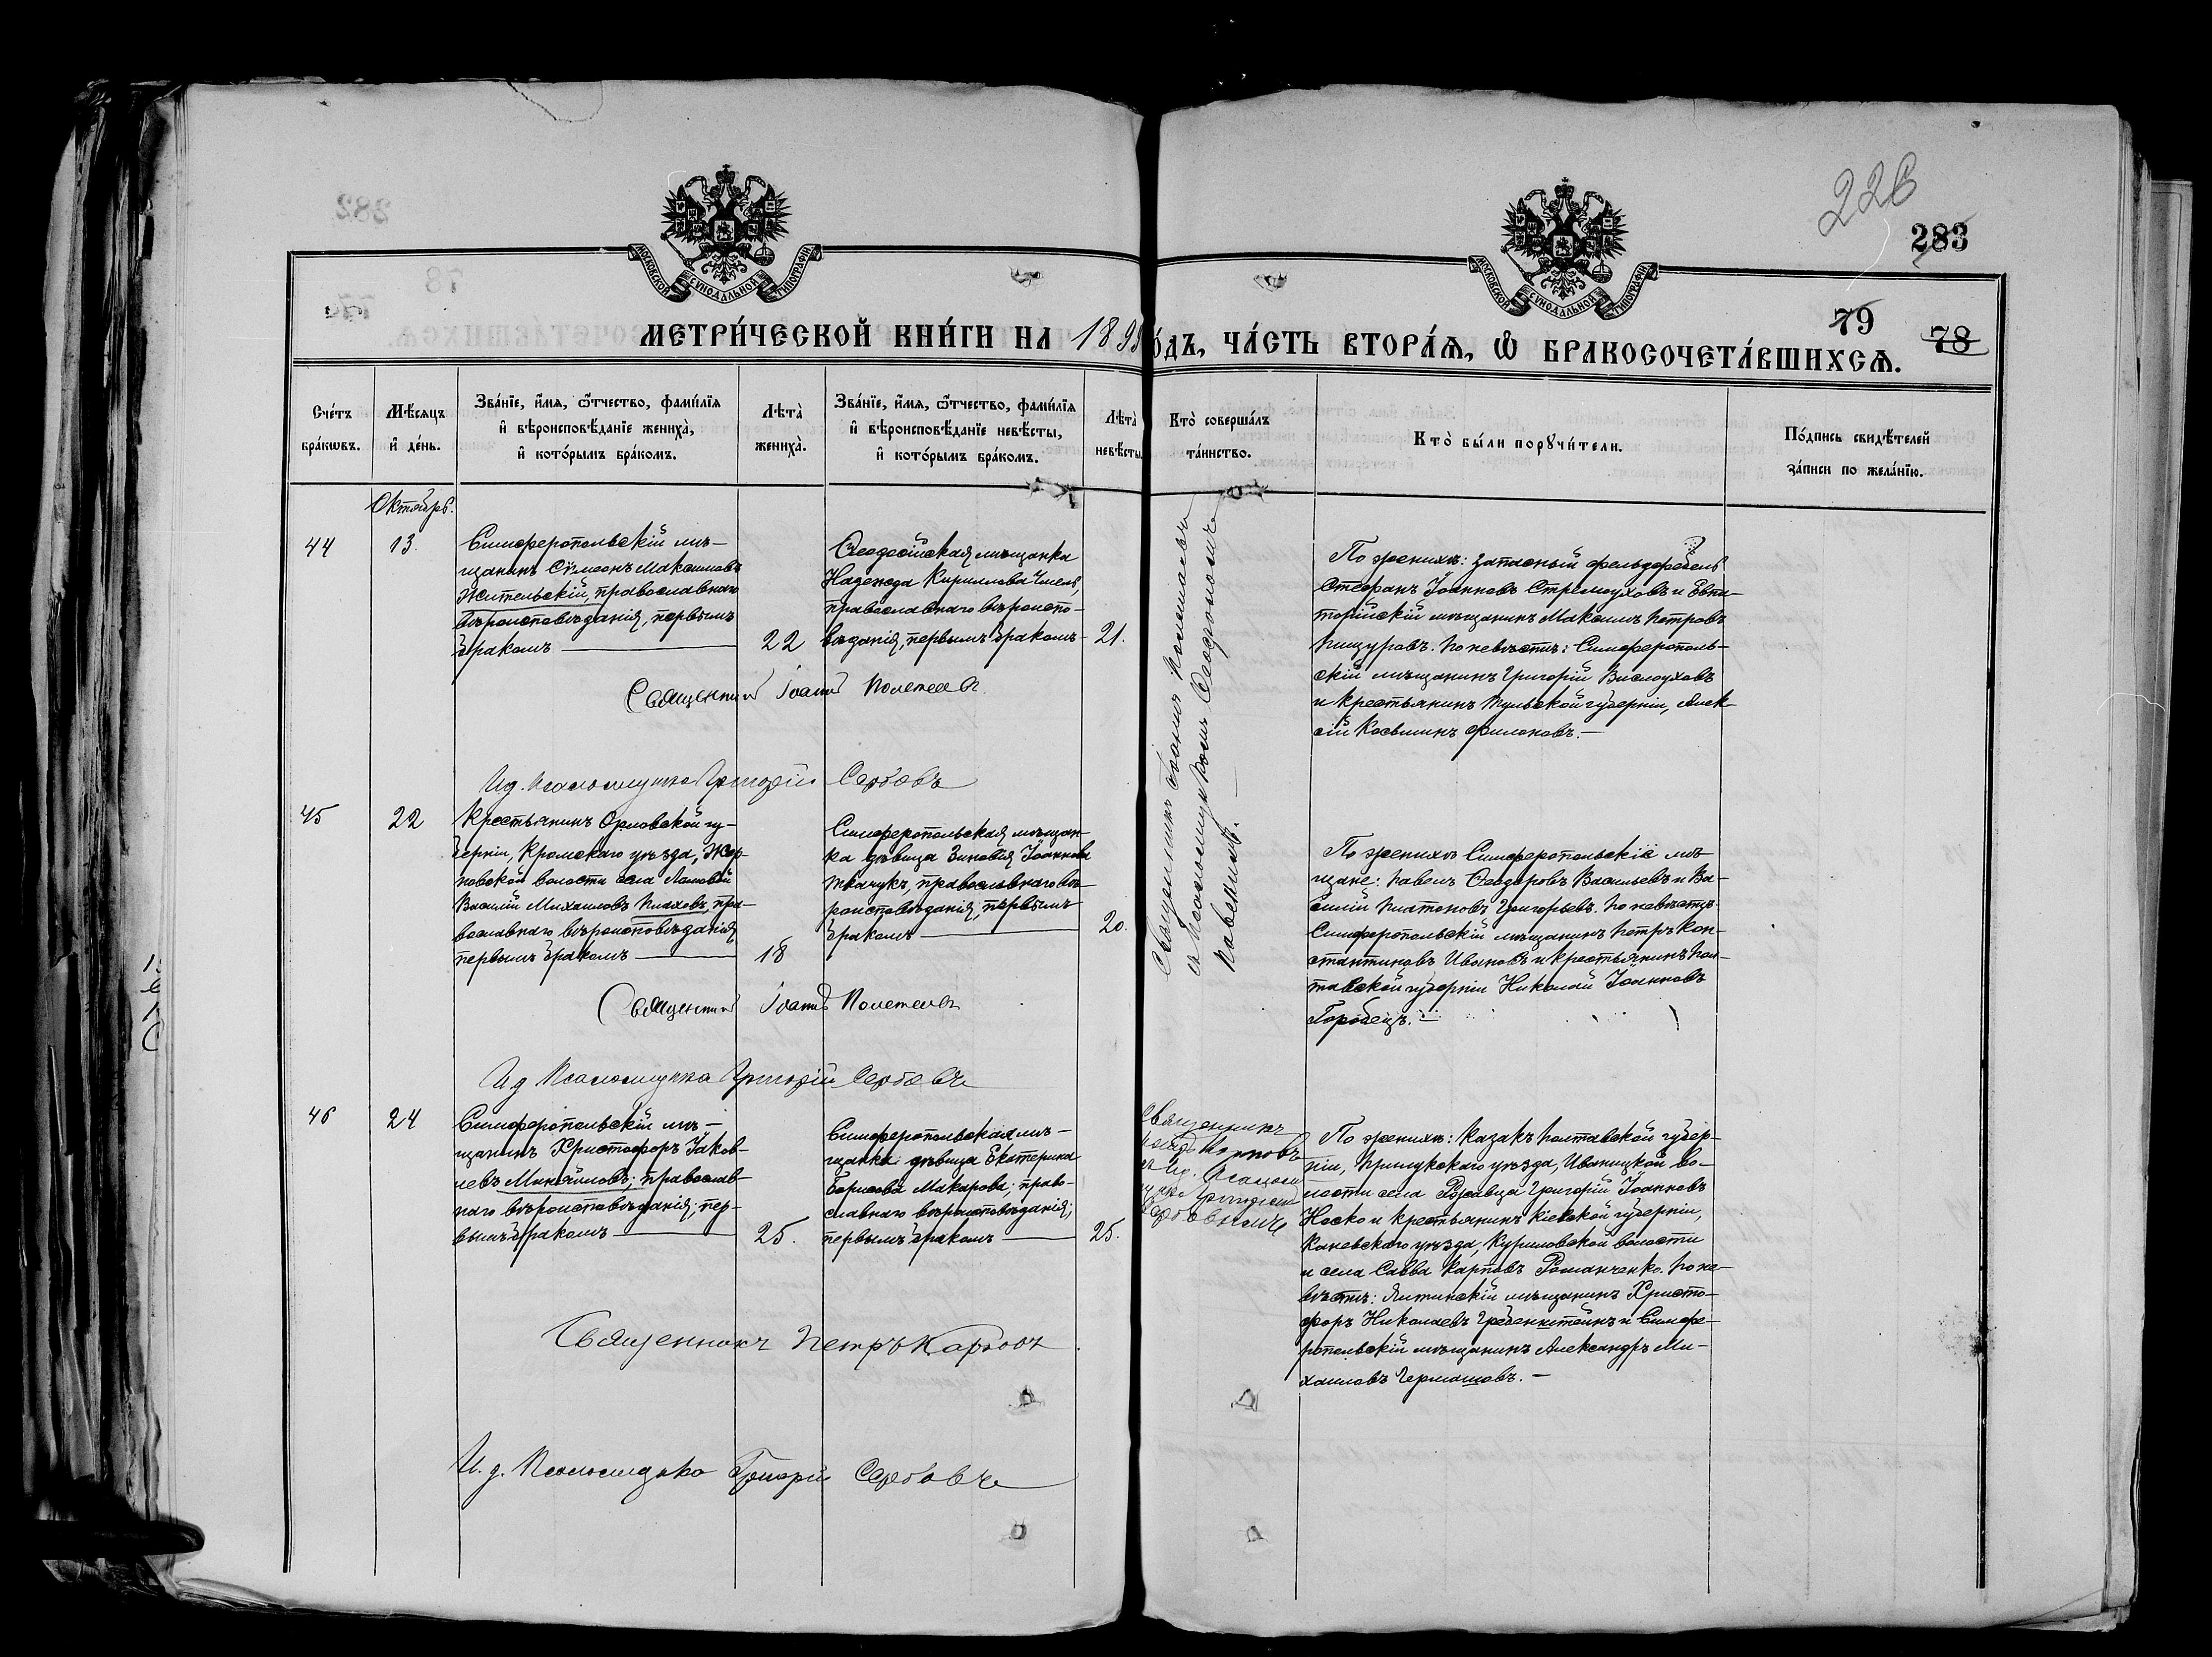 226
283
79
78
МОСКОВСКОЙ СУНОДАЛЬНОЙ ТИПОГРАФІИ
МОСКОВСКОЙ СУНОДАЛЬНОЙ ТИПОГРАФІИ
МЕТРИ́ЧЕСКОЙ КНИ́ГИ НА 1899
О́ДЪ, ЧА́СТЬ ВТОРА́Ѧ, Ѽ БРАКОСОЧЕТА́ВШИХСѦ.
Сче́тъ
бра́кѡвъ.
Мѣ́сяцъ
и҆ де́нь.
Зва́нїе, и҆́мя, ѻ҆́тчество, фами́лїя
и҆ вѣроисповѣ́данїе жениха̀,
и҆ кото́рымъ бра́комъ.
Лѣта̀
жениха̀.
Зва́нїе, и҆́мя, ѻ҆́тчество, фами́лїя
и҆ вѣроисповѣ́данїе невѣ́сты,
и҆ кото́рымъ бра́комъ.
Лѣта̀
невѣ́сты
Кто̀ соверша́лъ
та́инство.
Кто̀ бы́ли порꙋчи́тели.
По́дпись свидѣ́телей
за́писи по жела́нїю.
Октябрь.
44
13.
Симферопольскій мѣ-
щанинъ Сѵмеонъ Максимовъ
Жительскій, православнаго
вѣроисповѣданія, первымъ
бракомъ
22
Ѳеодосійская мѣщанка
Надежда Кириллова
православнаго вѣроиспо-
вѣданія, первымъ бракомъ
21.
По женихѣ: запасный фельдфебель
Стефанъ Іоанновъ Стремоуховъ и Евпа-
торійскій мѣщанинъ Максимъ Петровъ
Пищуровъ. По невѣстѣ: Симферополь-
скій мѣщанинъ Григорій Вислоуховъ
и крестьянинъ Тульской губерніи, Алек
сій Косьминъ Филоновъ.
Священникъ Іоаннъ
Ид. Псаломщика Григорій Сербовъ
45
22
Крестьянинъ Орловской гу-
берніи, Кромскаго уѣзда,
новской волости села
Василій Михаиловъ Плаховъ, пра-
вославнаго вѣроисповѣданія
первымъ бракомъ
18
Симферопольская мѣщан-
ка дѣвица Зиновія Іоаннова
Ткачукъ, православнаго вѣ-
роисповѣданія, первымъ
бракомъ
20.
По женихѣ Симферопольскіе мѣ
щане: Павелъ Ѳеодоровъ Васильевъ и Ва-
силій Платоновъ Григорьевъ. По невѣстѣ
Симферопольскій мѣщанинъ Петръ Кон-
стантиновъ Ивановъ и крестьянинъ Пол-
тавской губерніи Николай Іоанновъ
Горобецъ.
Священникъ Іоаннъ
Ид Псаломщика Григорій Сербовъ
46
24
Симферопольскій мѣ-
щанинъ Христофоръ Іаков-
левъ православ-
наго вѣроисповѣданія; пер-
вымъ бракомъ
25.
Симферопольская мѣ-
щанка дѣвица Екатерина
Борисова Макарова; право-
славнаго вѣроисповѣданія;
первымъ бракомъ
25.
Священникъ
По женихѣ: казакъ Полтавской губер-
ніи, Прилукскаго уѣзда, Иваницкой во-
лости села Григорій Іоанновъ
Носко и крестьянинъ Кіевской губерніи,
Каневскаго уѣзда, Куриловской волости
и села Савва Карповъ Романченко. По не-
вѣстѣ: Ялтинскій мѣщанинъ Христо-
форъ Николаевъ Гребенштейнъ и Симфе-
ропольскій мѣщанинъ Александръ Ми-
хаиловъ Гермашовъ.
Священникъ Петръ Карповъ
И. д. Псаломщика Григорій Сербовъ